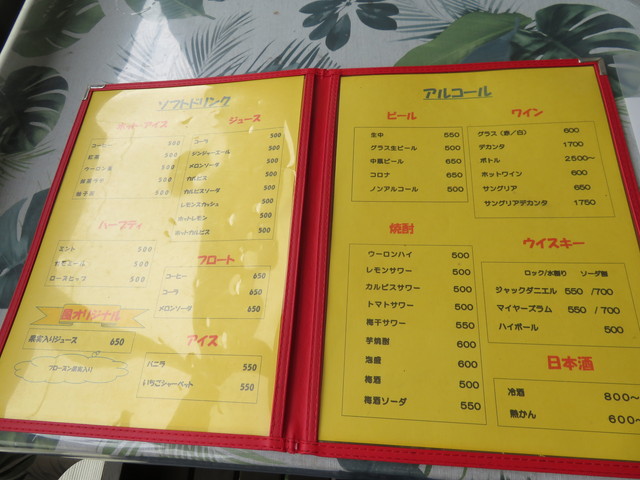 ソフトドリンク
ホット・アイス
コーヒー 500
紅茶 500
ウーロン茶 500
抹茶ラテ 500
柚子茶 500
ハーブティ
ミント 500
カモミール 500
ローズヒップ 500
風オリジナル
果実入りジュース 650
フローズン果実入り
ジュース
コーラ 500
ジンジャーエール 500
メロンソーダ 500
カルピス 500
カルピスソーダ 500
レモンスカッシュ 500
ホットレモン 500
ホットカルピス 500
フロート
コーヒー 650
コーラ 650
メロンソーダ 650
アイス
バニラ 550
いちごシャーベット 550
アルコール
ビール
生中 550
グラス生ビール 500
中瓶ビール 650
コロナ 650
ノンアルコール 500
焼酎
ウーロンハイ 500
レモンサワー 500
カルピスサワー 500
トマトサワー 500
梅干サワー 550
芋焼酎 600
泡盛 600
梅酒 500
梅酒ソーダ 550
ワイン
グラス(赤/白) 600
デカンタ 1700
ボトル 2500~
ホットワイン 600
サングリア 650
サングリアデカンタ 1750
ウイスキー
ロック/水割り ソーダ割
ジャックダニエル 550 /700
マイヤーズラム 550 /700
ハイボール 500
日本酒
冷酒 800~
熱かん 600~